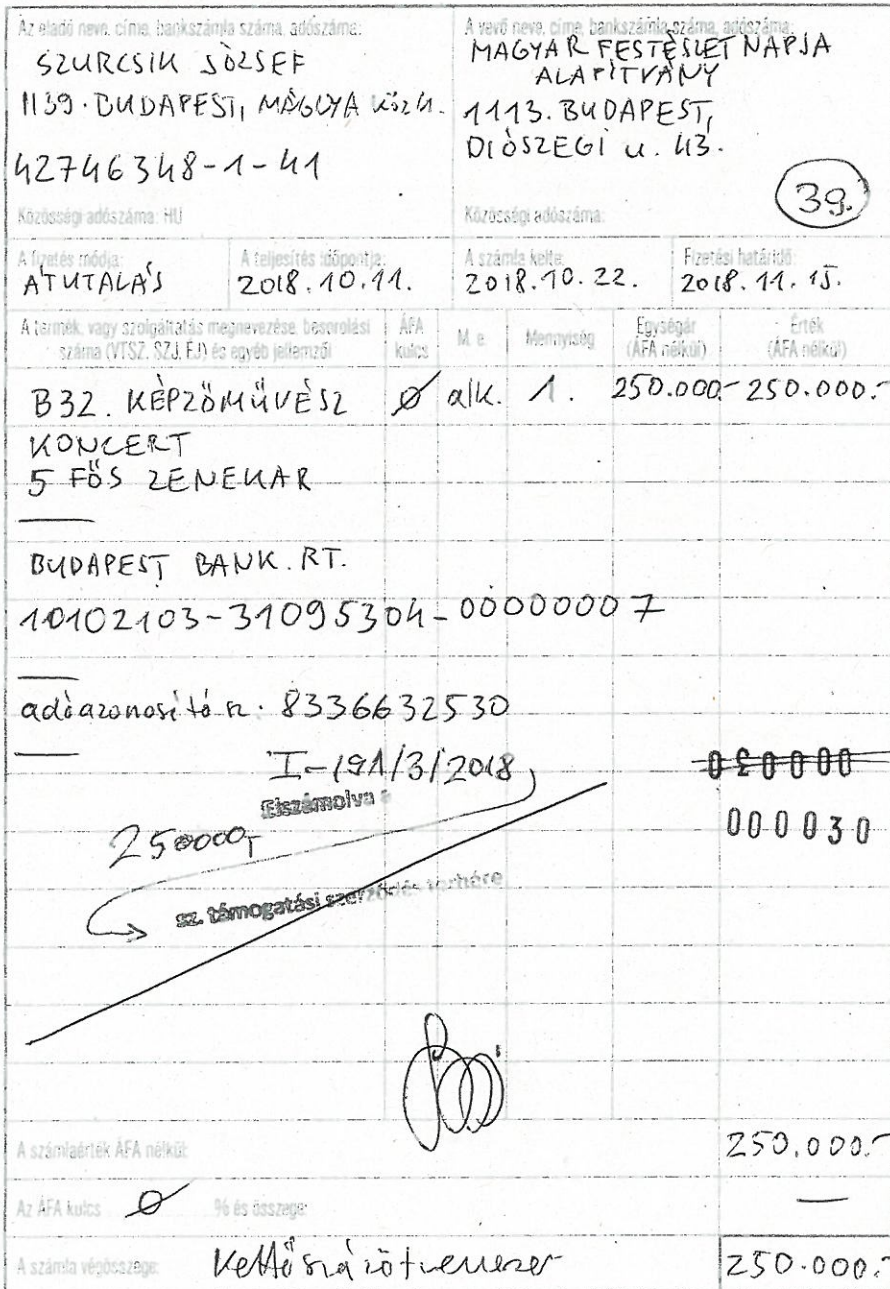 Az eladó neve, címe, bankszámla száma, adószáma:
SZURCSIK JÓZSEF
1139. BUDAPEST,
42746348-1-41
Közösségi adószáma: HU
A vevő neve, címe, bankszámla száma, adószáma:
MAGYAR FESTÉSZET NAPJA
ALAPÍTVÁNY
1113. BUDAPEST,
DIÓSZEGI u. 43.
39.
Közösségi adószáma:
A fizetés módja:
ÁTUTALÁS
A teljesítés időpontja:
2018.10.11.
A számla kelte:
2018.10.22.
Fizetési határidő:
2018.11.15.
A termék, vagy szolgáltatás megnevezése, besorolási
száma (VTSZ, SZJ, ÉJ) és egyéb jellemzői
ÁFA
kulcs
M. e.
Mennyiség
Egységár
(ÁFA nélkül)
Érték
(ÁFA nélkül)
B32. KÉPZŐMŰVÉSZ Ø alk. 1. 250.000.- 250.000.-
KONCERT
5 FŐS ZENEKAR
BUDAPEST BANK. RT.
10102103-31095304-00000007
adóazonosító sz. 8336632530
I-191/3/2018
Elszámolva
000030
250000,-
sz. támogatási szerződés terhére
A számlaérték ÁFA nélkül: 250.000.-
Az ÁFA kulcs Ø % és összege: —
A számla végösszege: Kettőszázötvenezer 250.000.-